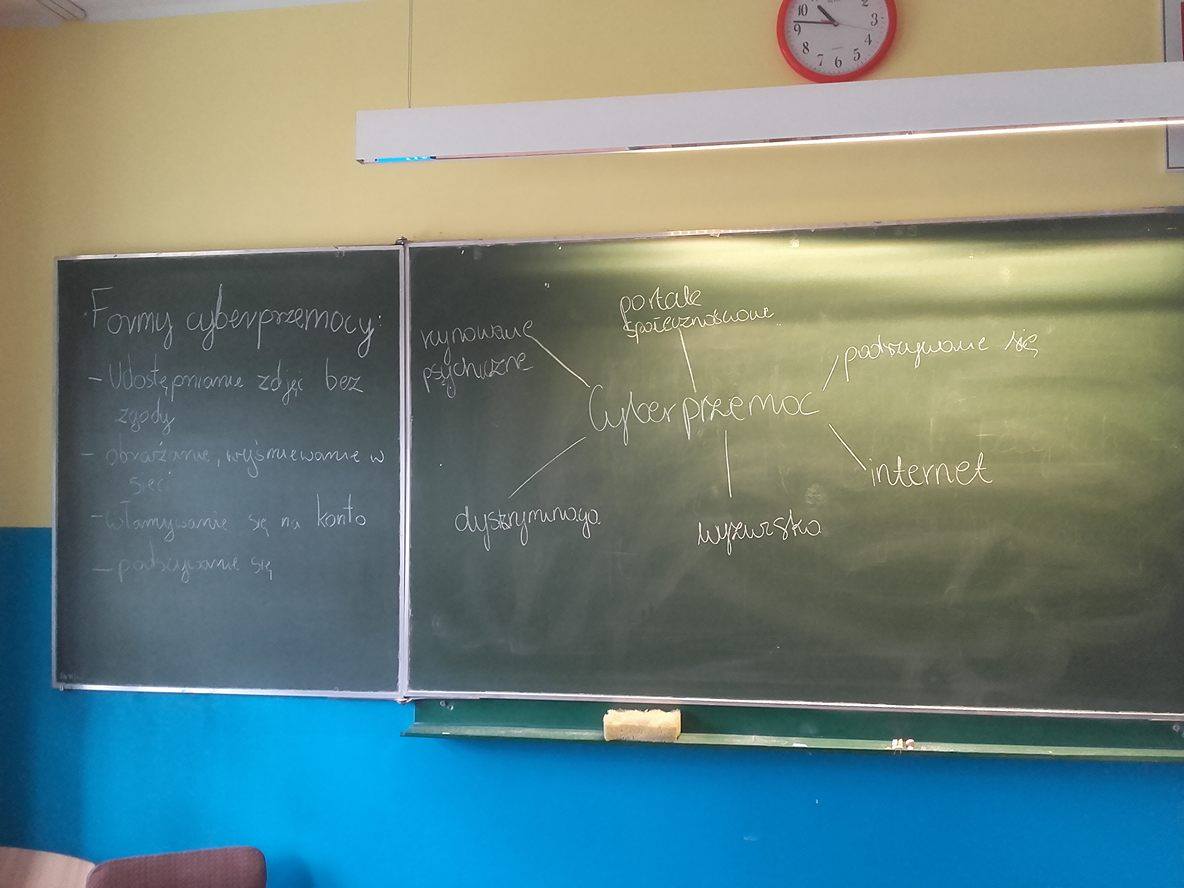 Formy cyberprzemocy:
- Udostępnianie zdjęć bez
zgody
- obrażanie, wyśmiewanie w
sieci
- włamywanie się na konto
- podszywanie się
rujnowanie
psychiczne
portale
społecznościowe
podszywanie się
Cyberprzemoc
internet
dyskryminacja
wyzwiska
10
2
9
3
8
4
7
6
5